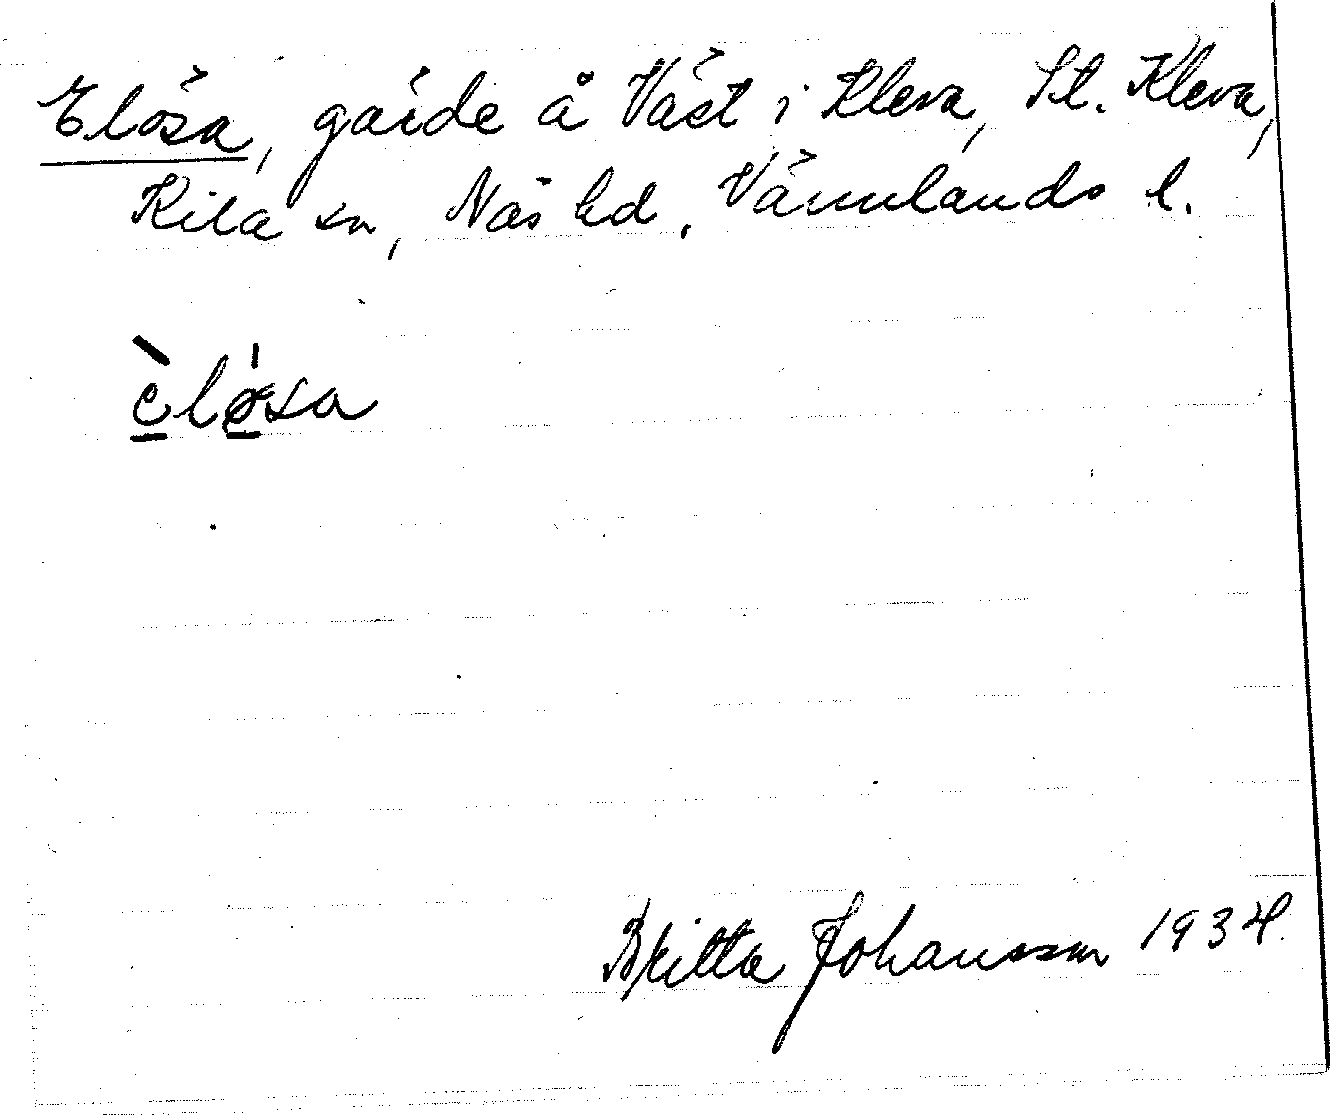 Elösa, gärde å Väst i Kleva, St. Kleva,
Kila sn, Näs hd, Värmlands l.
è̱lǿ̱sa
Britta Johansson 1934.